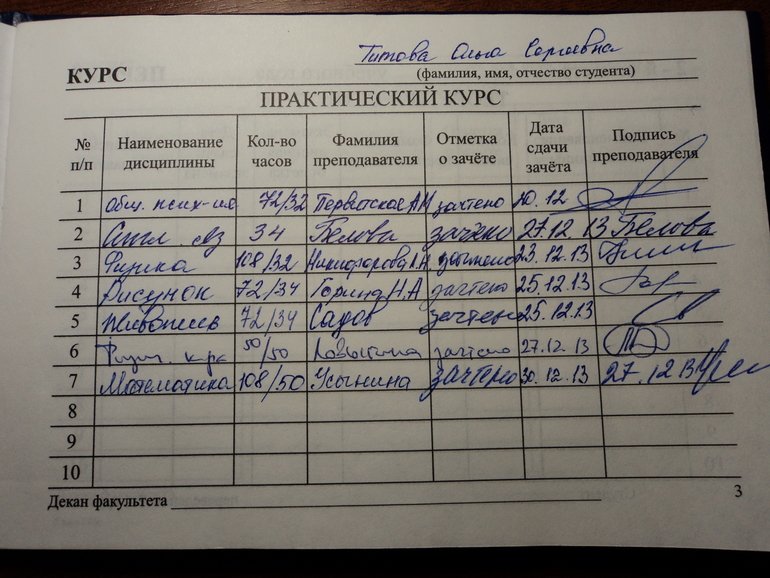 Титова Ольга Сергеевна
КУРС (фамилия, имя, отчество студента)
ПРАКТИЧЕСКИЙ КУРС
№ п/п Наименование дисциплины Кол-во часов Фамилия преподавателя Отметка о зачёте Дата сдачи зачёта Подпись преподавателя
1 Общ. псих-ия 72/32 зачтено 20.12
2 Англ. яз 34 Белова зачтено 27.12.13 Белова
3 Физика 108/32 Никифорова зачтено 23.12.13
4 Рисунок 72/34 Горина Н.А зачтено 25.12.13
5 Живопись 72/34 Садов зачтено 25.12.13
6 Физич. к-ра 50/50 зачтено 27.12.13
7 Математика 108/50 Усынина зачтено 30.12.13 27.12.13
8
9
10
Декан факультета
3